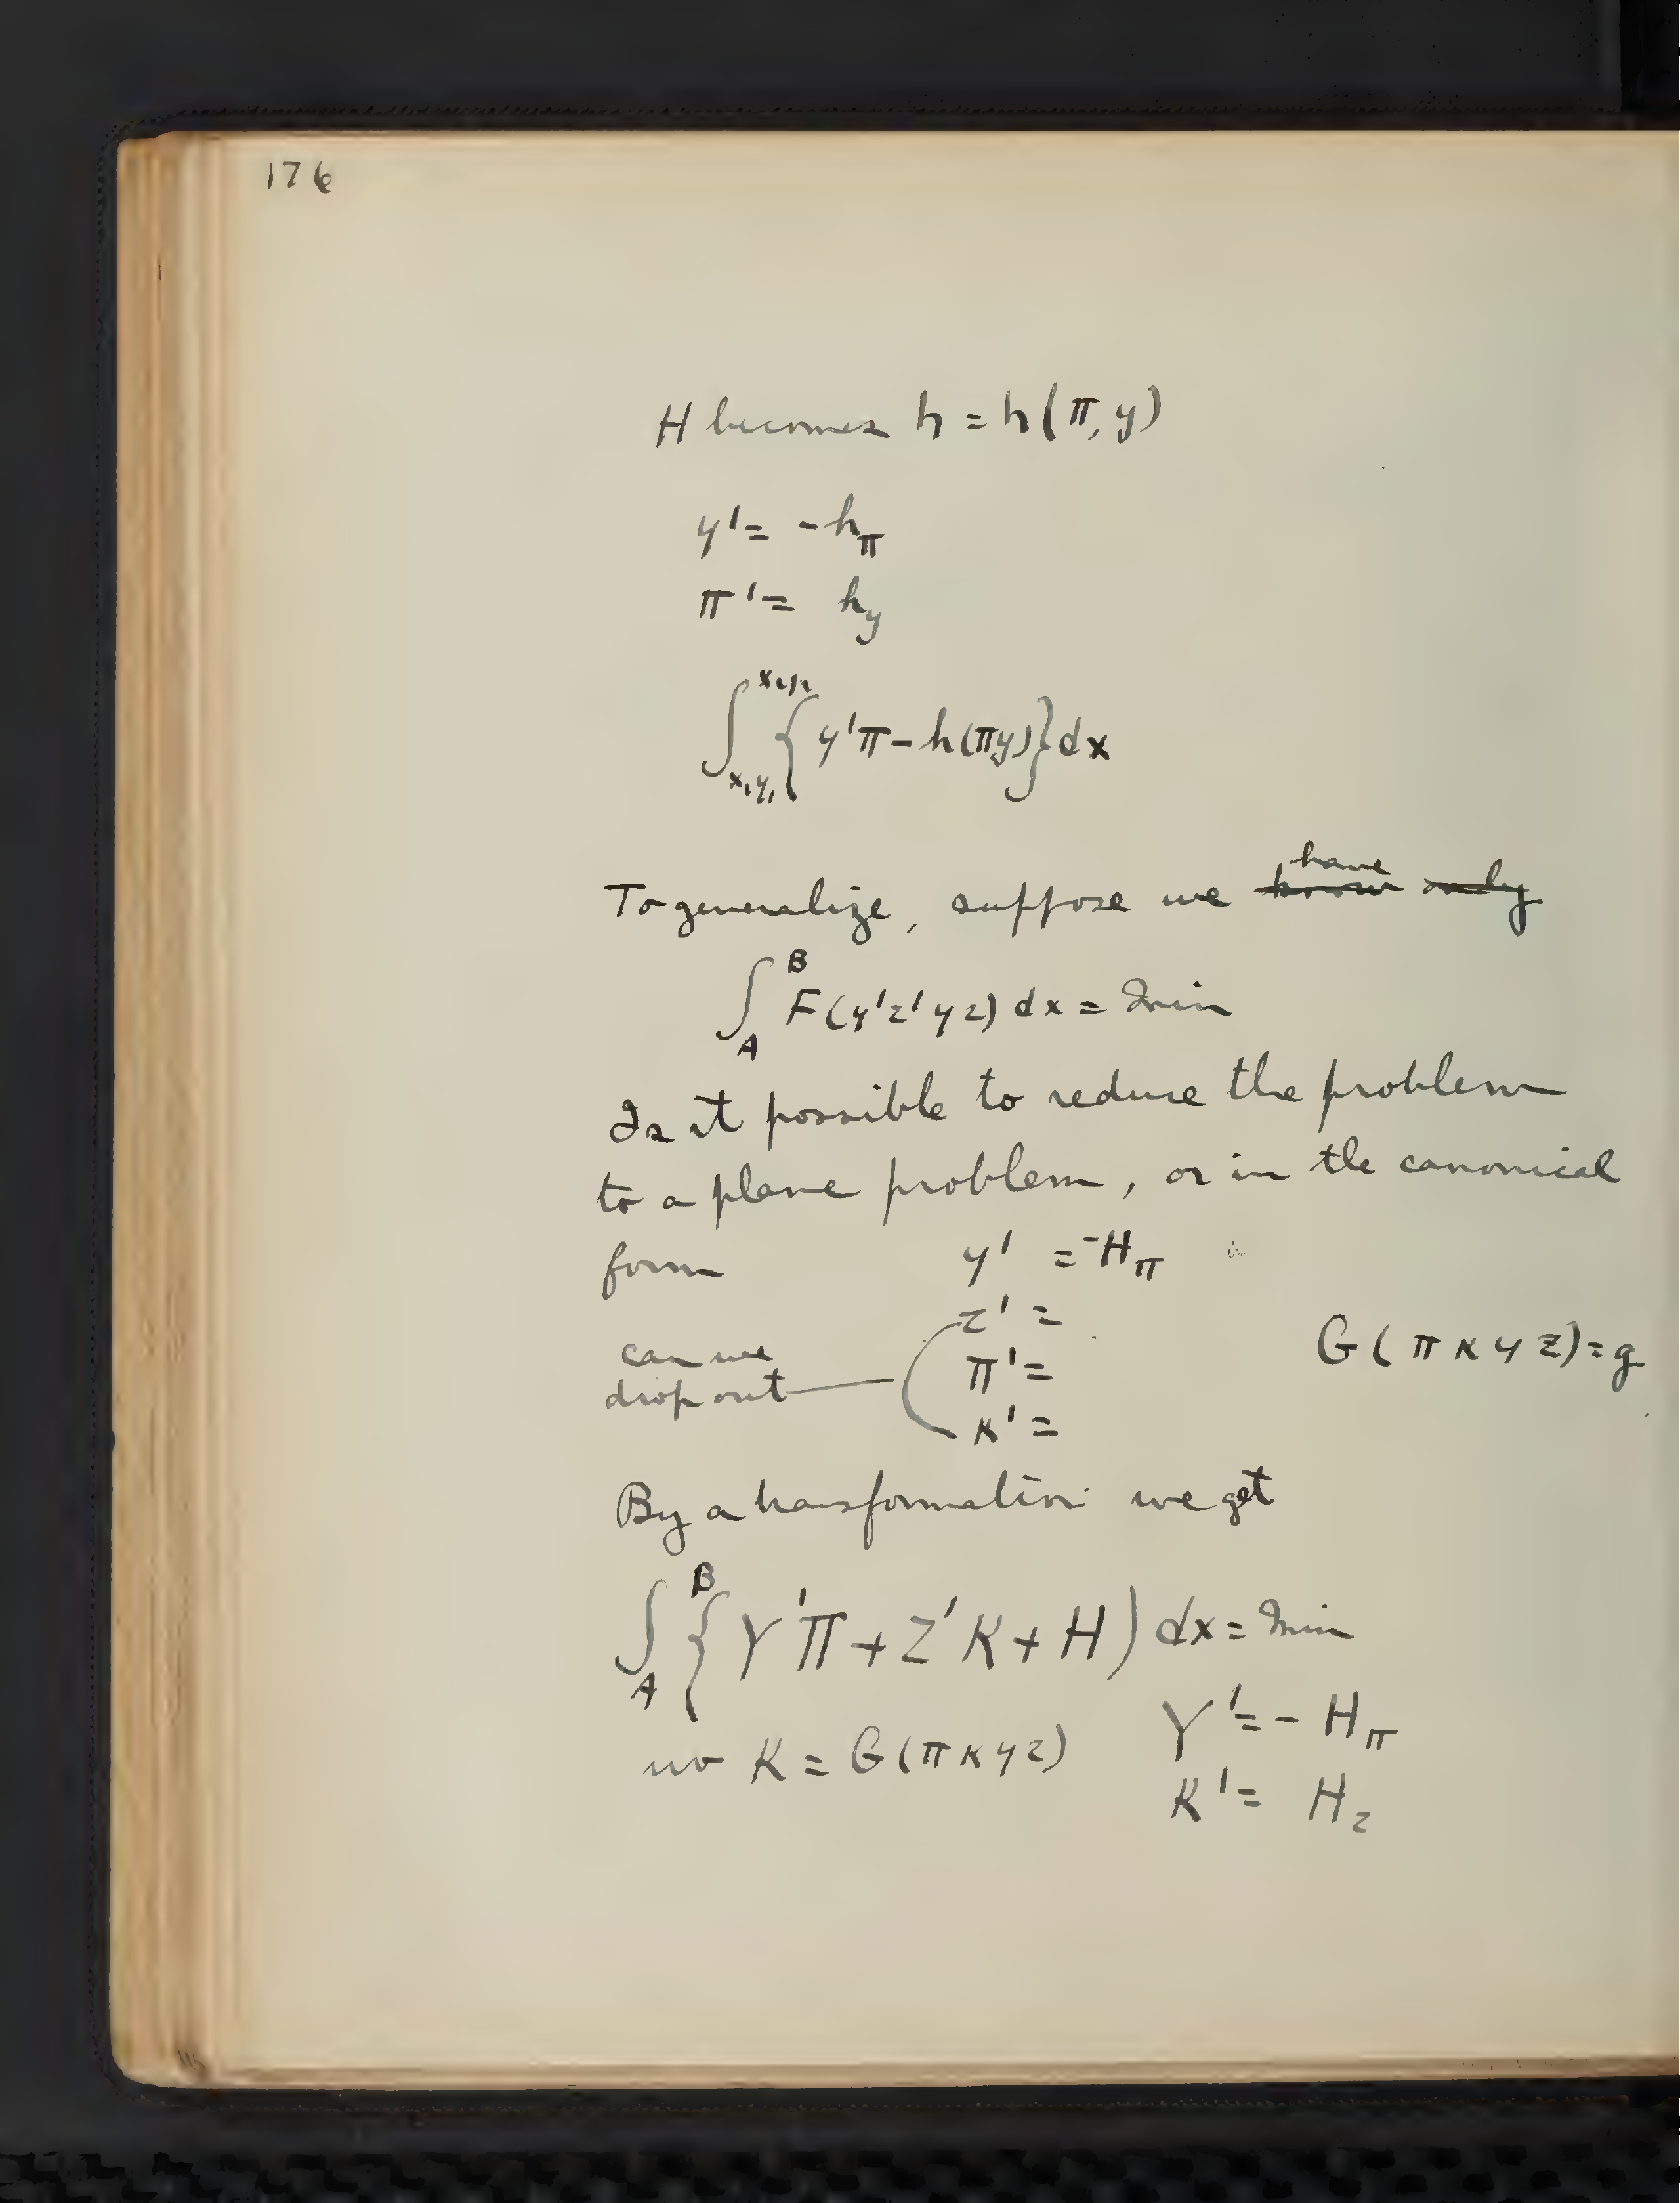 176
H becomes h = h(π, y)
y' = -h_π
π' = h_y
∫_{x₁y₁}^{x₂y₂} { y'π - h(πy) } dx
To generalize, suppose we have
∫_A^B F(y'z'yz) dx = Min
Is it possible to reduce the problem
to a plane problem, or in the canonical
form y' = -H_π
z' =
can we π' = G(π κ y z) = g
drop out κ' =
By a transformation we get
∫_A^B { Y'Π + Z'K + H ) dx = Min
Y' = - H_π
K = G(π κ y z)
K' = H_z